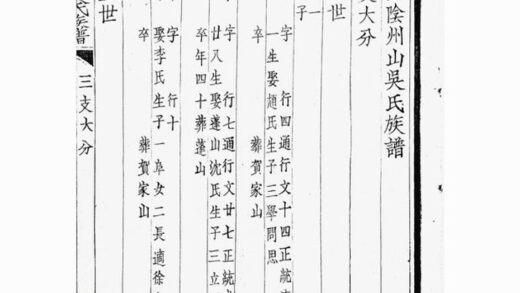 陰州山吳氏族譜
大分
世
一
子
字 行四通行文十四正統
一生娶趙氏生子三學問思
卒 葬賀家山
字 行七通行文廿七正統
廿八生娶蓬山沈氏生子三立
卒年四十葬蓬山
字 行十
娶李氏生子一阜女二長適徐
卒 葬賀家山
世
氏族譜
三支大分